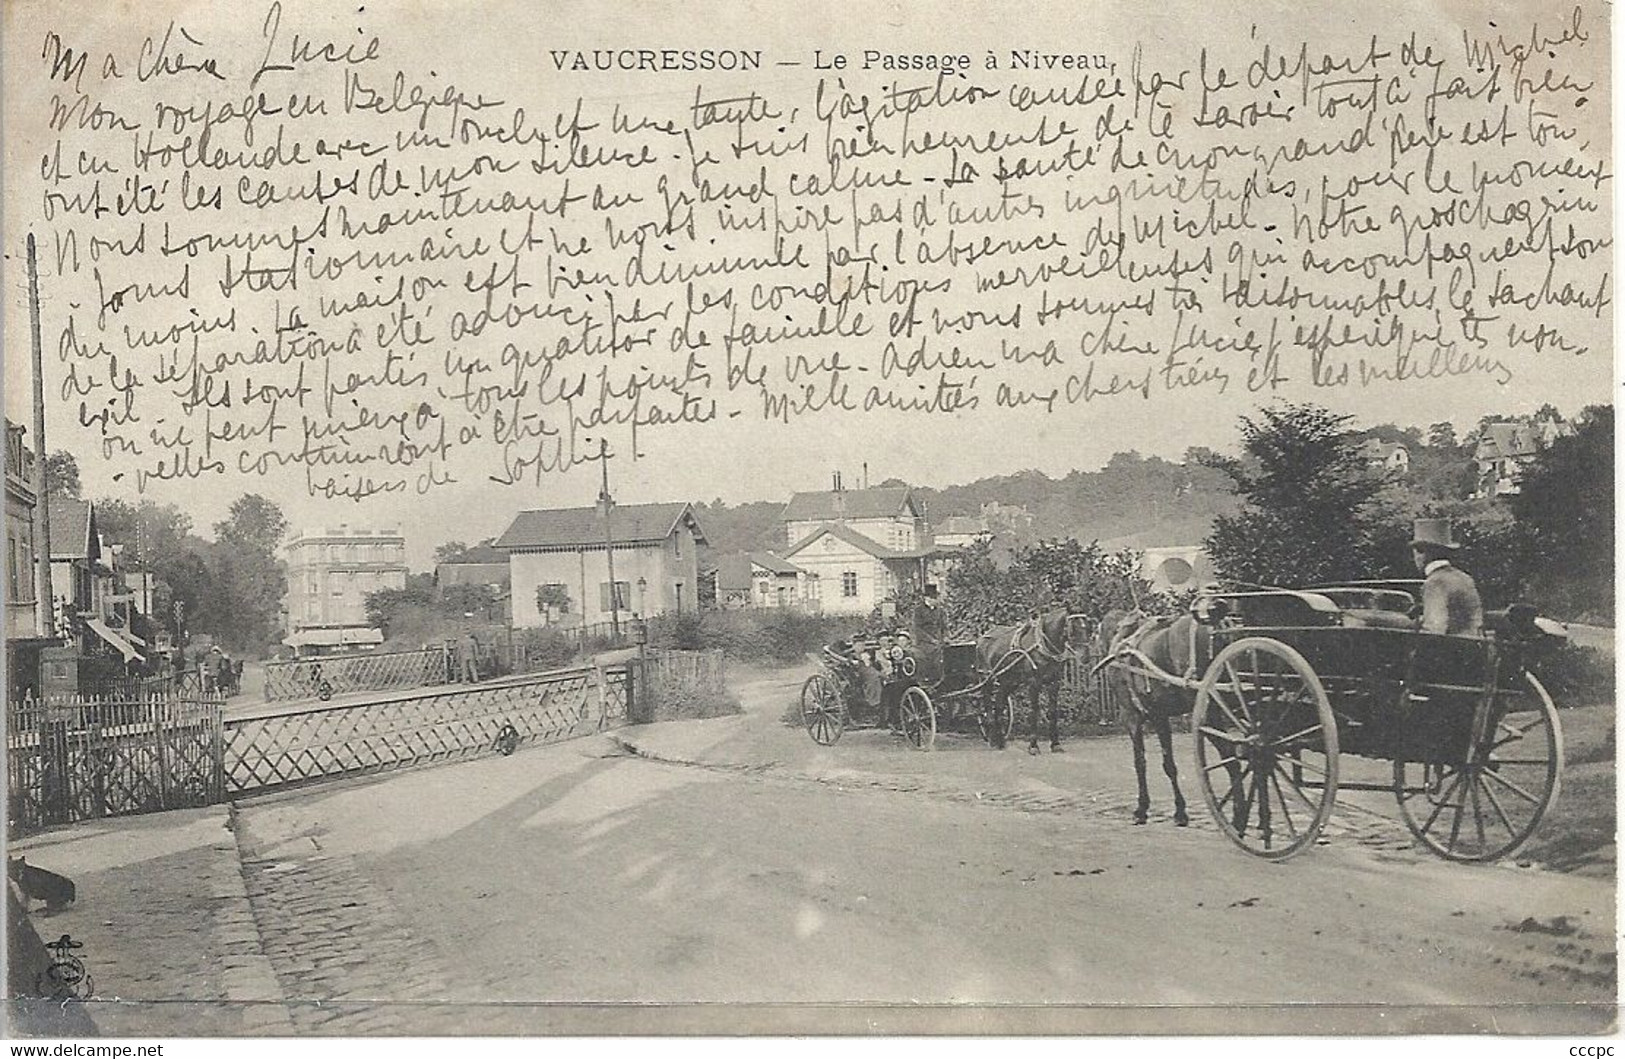 VAUCRESSON — Le Passage à Niveau,
Ma chère Lucie
Mon voyage en Belgique
et en Hollande avec un oncle et une tante, l'agitation causée par le départ de Michel
ont été les causes de mon silence. Je suis bien heureuse de te savoir tout à fait bien
Nous sommes maintenant au grand calme - La santé de mon grand'Père est tou-
-jours stationnaire et ne nous inspire pas d'autres inquiétudes, pour le moment
du moins. La maison est bien diminuée par l'absence de Michel - Notre gros chagrin
de la séparation a été adouci par les conditions merveilleuses qui accompagnent son
exil - Ils sont partis un quatuor de famille et nous sommes très raisonnables, le sachant
on ne peut mieux à tous les points de vue - Adieu ma chère Lucie, j'espère que tes nou-
-velles continueront à être parfaites - Mille amitiés aux chers tiens et les meilleurs
baisers de Sophie.
cccpc